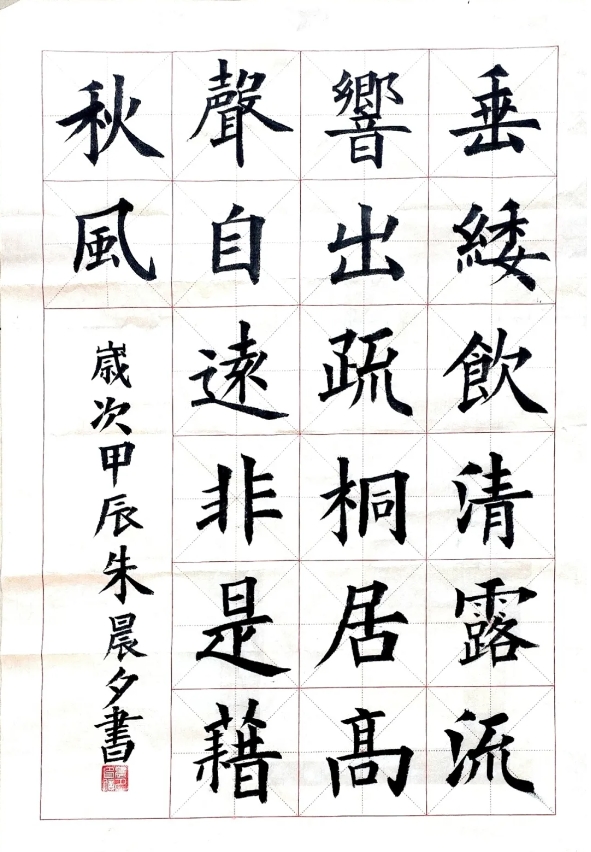 垂緌飲清露流
響出疏桐居高
聲自遠非是藉
秋風
歲次甲辰朱晨夕書